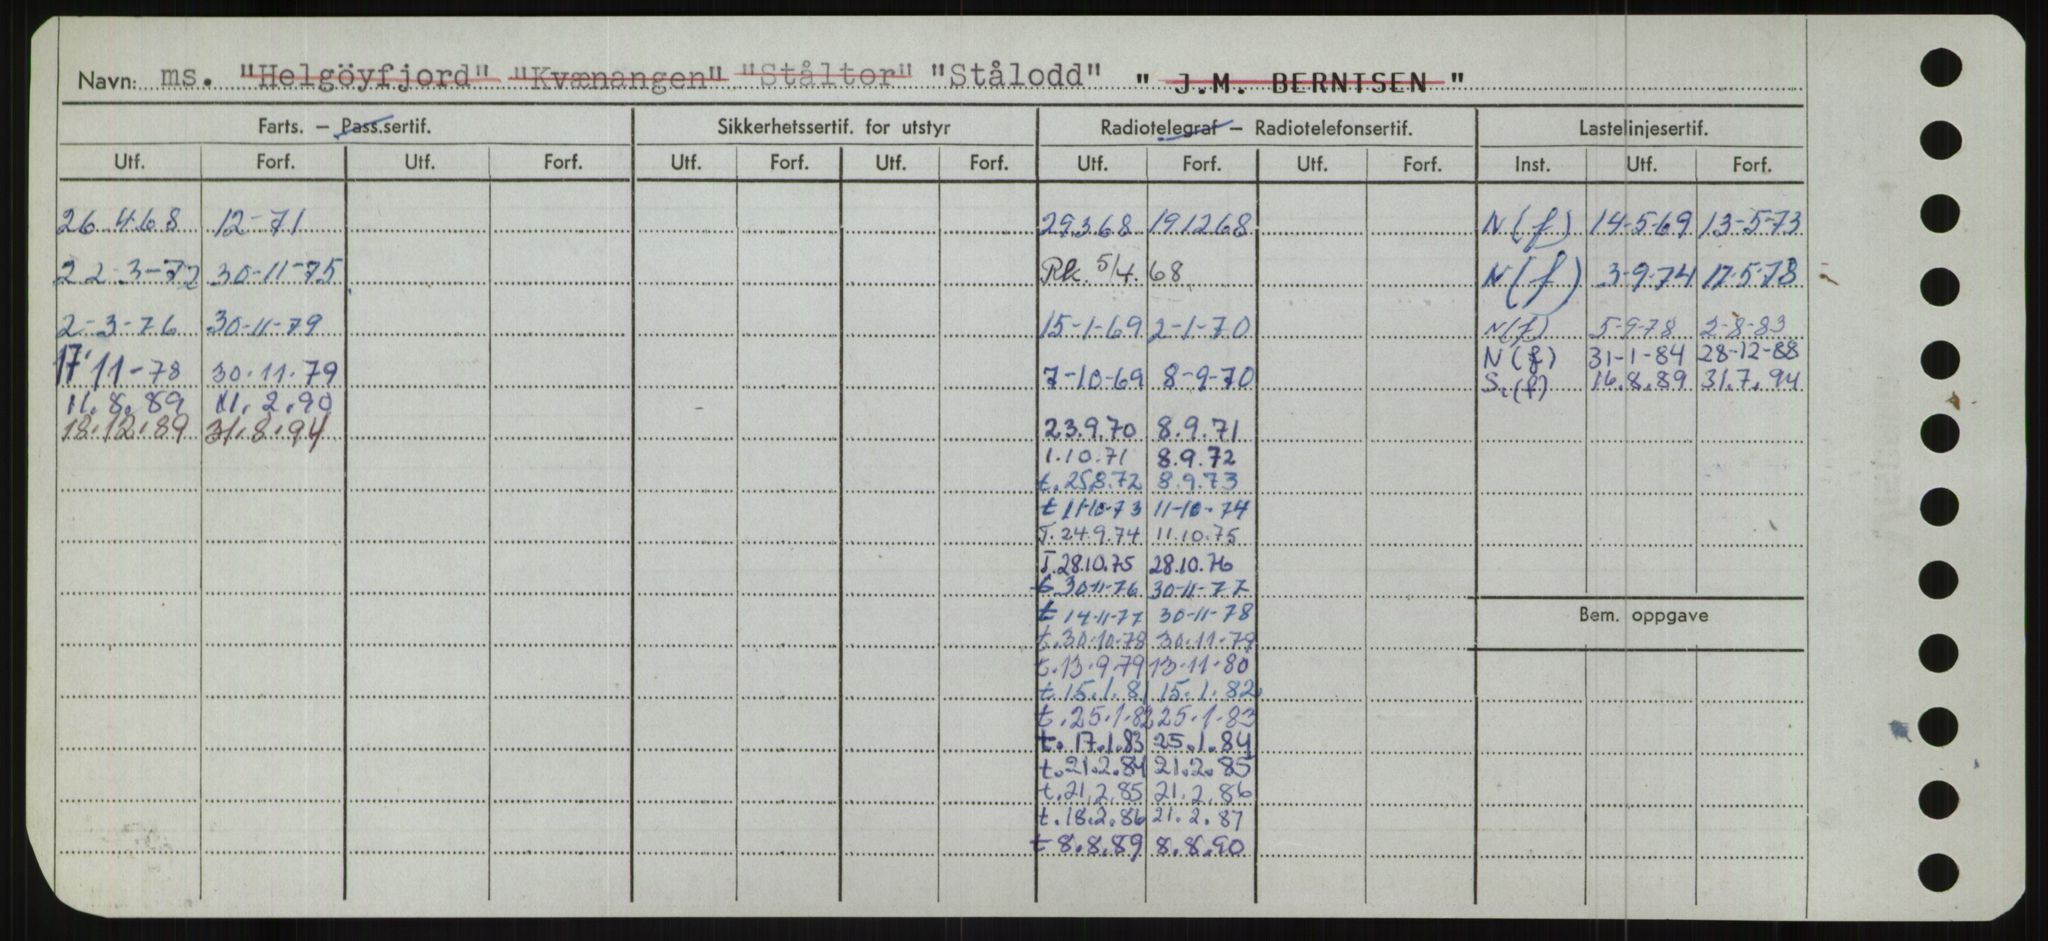 Navn: ms. "Helgöyfjord" "Kvænangen" "Ståltor" "Stålodd" " J.M. BERNTSEN "
Farts. – Pass.sertif. Sikkerhetssertif. for utstyr Radiotelegraf – Radiotelefonsertif. Lastelinjesertif.
Utf. Forf. Utf. Forf. Utf. Forf. Utf. Forf. Utf. Forf. Utf. Forf. Inst. Utf. Forf.
26.4.68 12-71 29.3.68 19.12.68 N(f) 14-5-69 13-5-73
22-3-72 30-11-75 Rk. 5/4. 68 N(f) 3-9-74 17-5-78
2-3-76 30-11-79 15-1-69 2-1-70 N(f) 5-9-78 2-8-83
N(f) 31-1-84 28-12-88
17-11-78 30.11.79 7-10-69 8-9-70 S.(f) 16.8.89 31.7.94
11.8.89 11.2.90
18.12.89 31.8.94 23.9.70 8.9.71
1.10.71 8.9.72
t.25.8.72 8.9.73
t 11-10-73 11-10-74
T.24.9.74 11.10.75
T.28.10.75 28.10.76
t 30-11-76 30-11-77
t 14-11-77 30-11-78
Bem. oppgave
t.30-10-78 30.11-79
t.13.9.79 13-11-80
t.15.1.81 15.1.82
t.25.1.82 25.1.83
t. 17.1.83 25.1.84
t.21.2.84 21.2.85
t.21.2.85 21.2.86
t.18.2.86 21.2.87
t 8.8.89 8.8.90